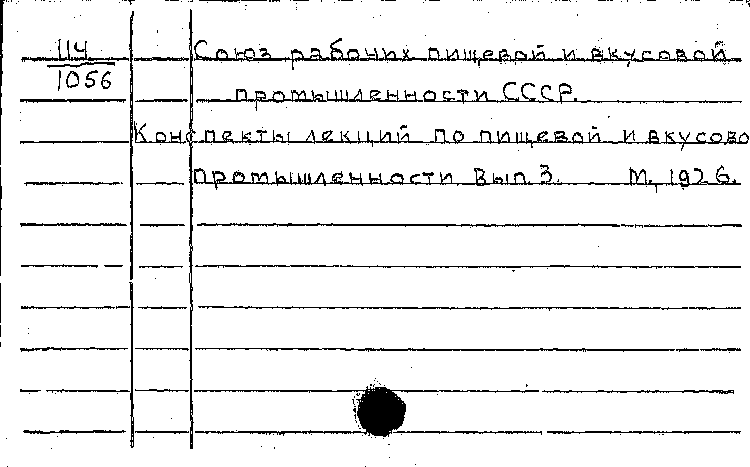 114
1056
Союз рабочих пищевой и вкусовой
промышленности СССР.
Конспекты лекций по пищевой и вкусово
промышленности Вып. 3. М., 1926.